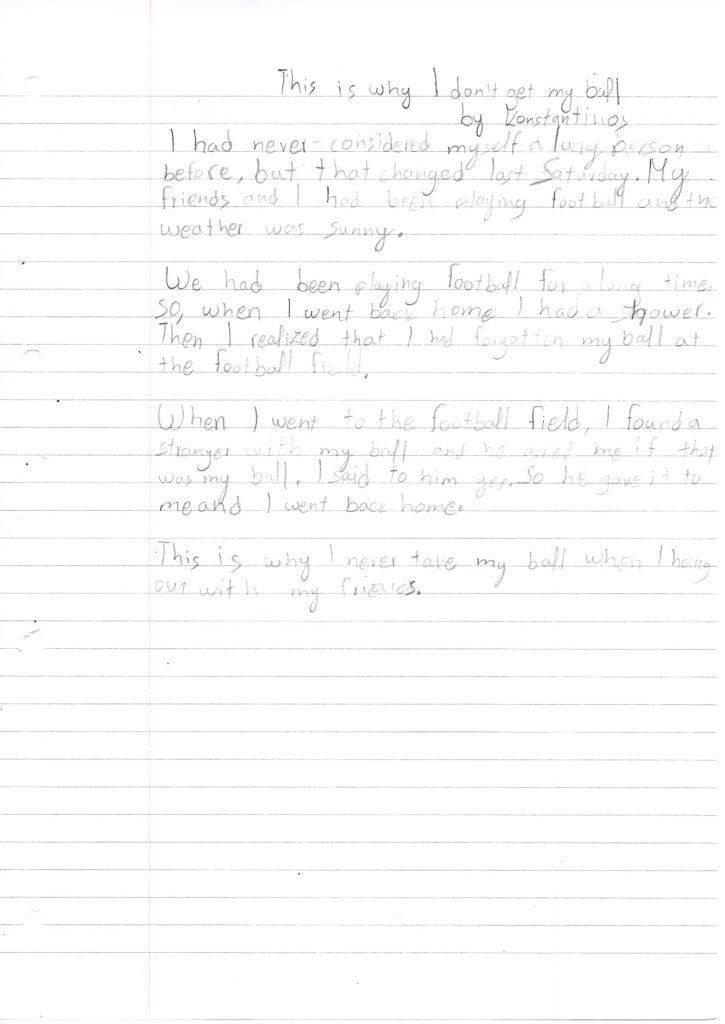 This is why I don't get my ball
by Konstantinos
I had never-considered myself a lucky person
before, but that changed last Saturday. My
friends and I had been playing football and the
weather was sunny.
We had been playing football for a long time,
so, when I went back home I had a shower.
Then I realized that I had forgotten my ball at
the football field.
When I went to the football field, I found a
stranger with my ball and he asked me if that
was my ball. I said to him yes. So he gave it to
me and I went back home.
This is why I never take my ball when I hang
out with my friends.